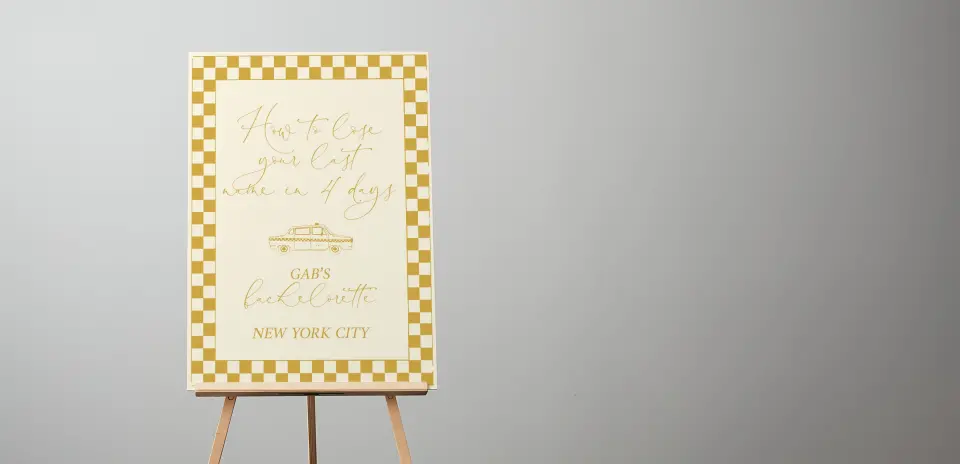 How to lose
your last
name in 4 days
GAB'S
bachelorette
NEW YORK CITY